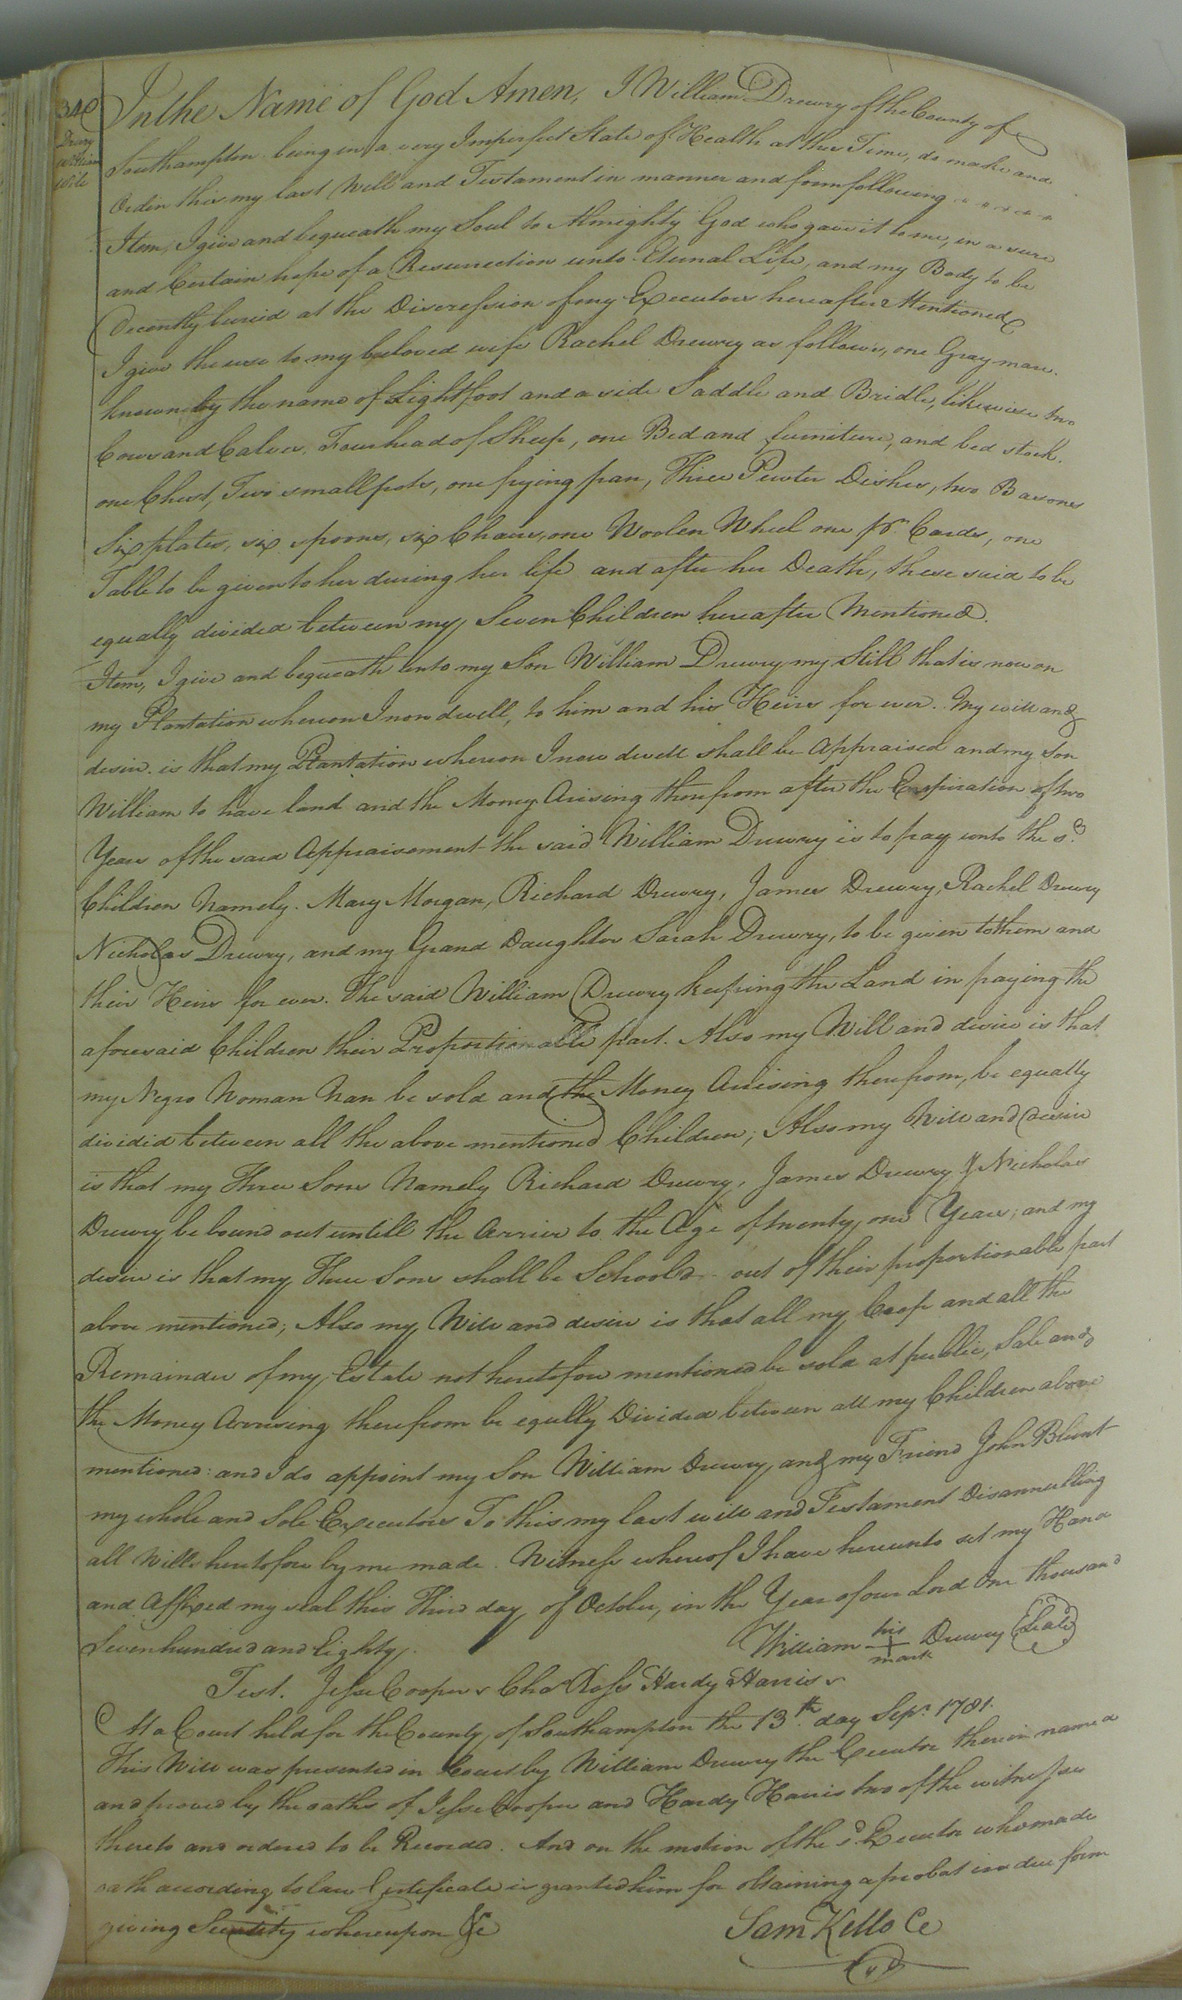 340
Drewry
William
Will
In the Name of God Amen, I William Drewry of the County of
Southampton being in a very Imperfect State of Health at this Time, do make and
Ordin this my last Will and Testament in manner and form following
Item, I give and bequeath my Soul to Almighty God who gave it to me, in a sure
and Certain hope of a Resurrection unto Eternal Life, and my Body to be
Decently buried at the Discression of my Executors hereafter Mentioned
I give the use to my beloved wife Rachel Drewry as follows, one Gray mare.
known by the name of Lightfoot and a side Saddle and Bridle, likewise two
Cows and Calves, Four head of Sheep, one Bed and furniture, and bed stead.
one Chest, Two small pots, one frying pan, Three Pewter Dishes, two Basons
Six plates, six spoons, six Chairs, one Woolen Wheel one pr. Cards, one
Table to be given to her during her life and after her Death, these said to be
equally divided between my Seven Children hereafter Mentioned.
Item, I give and bequeath unto my Son William Drewry my Still that is now on
my Plantation whereon I now dwell, to him and his Heirs for ever. My will and
desire is that my Plantation whereon I now dwell shall be Appraised and my Son
William to have land and the Money Arising therefrom after the Expiration of two
Years of the said Appraisement the said William Drewry is to pay unto the sd.
Children Namely. Mary Morgan, Richard Drewry, James Drewry, Rachel Drewry
Nicholas Drewry, and my Grand Daughter Sarah Drewry, to be given to them and
their Heirs for ever. The said William Drewry keeping the Land in paying the
aforesaid Children their Proportionable part. Also my Will and desire is that
my Negro Woman Nan be sold and the Money Arising therefrom, be equally
divided between all the above mentioned Children; Also my Will and desire
is that my Three Sons Namely Richard Drewry, James Drewry & Nicholas
Drewry be bound out untill the Arrive to the Age of twenty one Years; and my
desire is that my Three Sons shall be Schoold out of their proportionable part
above mentioned; Also my Will and desire is that all my Croop and all the
Remainder of my Estate not heretofore mentioned be sold at public Sale and
the Money Arrising therefrom be equlley Divided between all my Children above
mentioned: and I do appoint my Son William Drewry, and my Friend John Blunt
my whole and Sole Executors To this my last will and Testament Disannulling
all Wills heretofore by me made. Witness whereof I have hereunto set my Hand
and Affixed my seal this Third day of October, in the Year of our Lord One thousand
Seven hundred and Eighty.
William his + mark Drewry (Seal)
Test. Jesse Cooper Chas Ross Hardy Harris
At a Court held for the County of Southampton the 13th. day Sepr. 1781.
This Will was presented in Court by William Drewry the Executor therein named
and proved by the oaths of Jesse Cooper and Hardy Harris two of the witnesses
thereto and ordered to be Recorded. And on the motion of the sd Executor who made
oath according to law Certificate is granted him for obtaining a probat in due form
giving Security whereupon &c
Sam Kello Cc